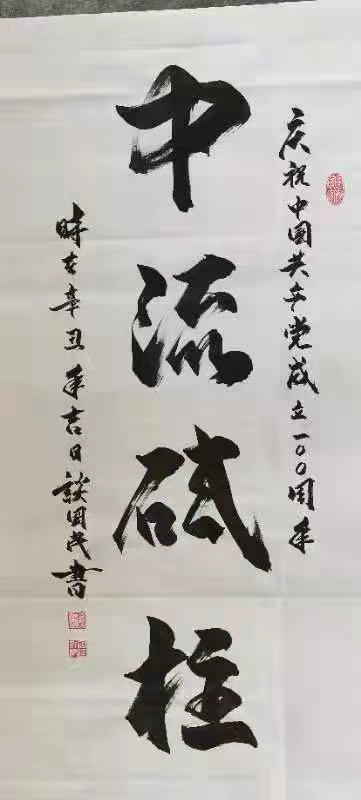 庆祝中国共产党成立一〇〇周年
中流砥柱
時在辛丑年吉日談国民書